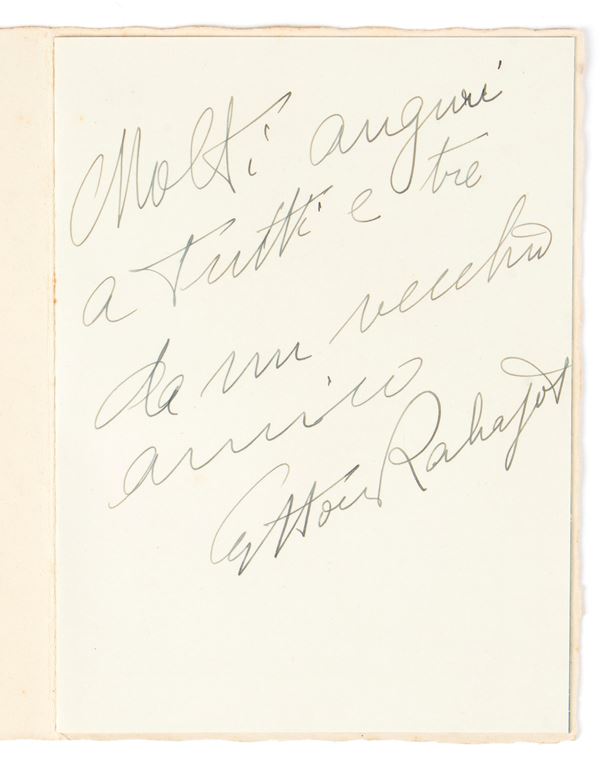 Molti auguri
a tutti e tre
da un vecchio
amico